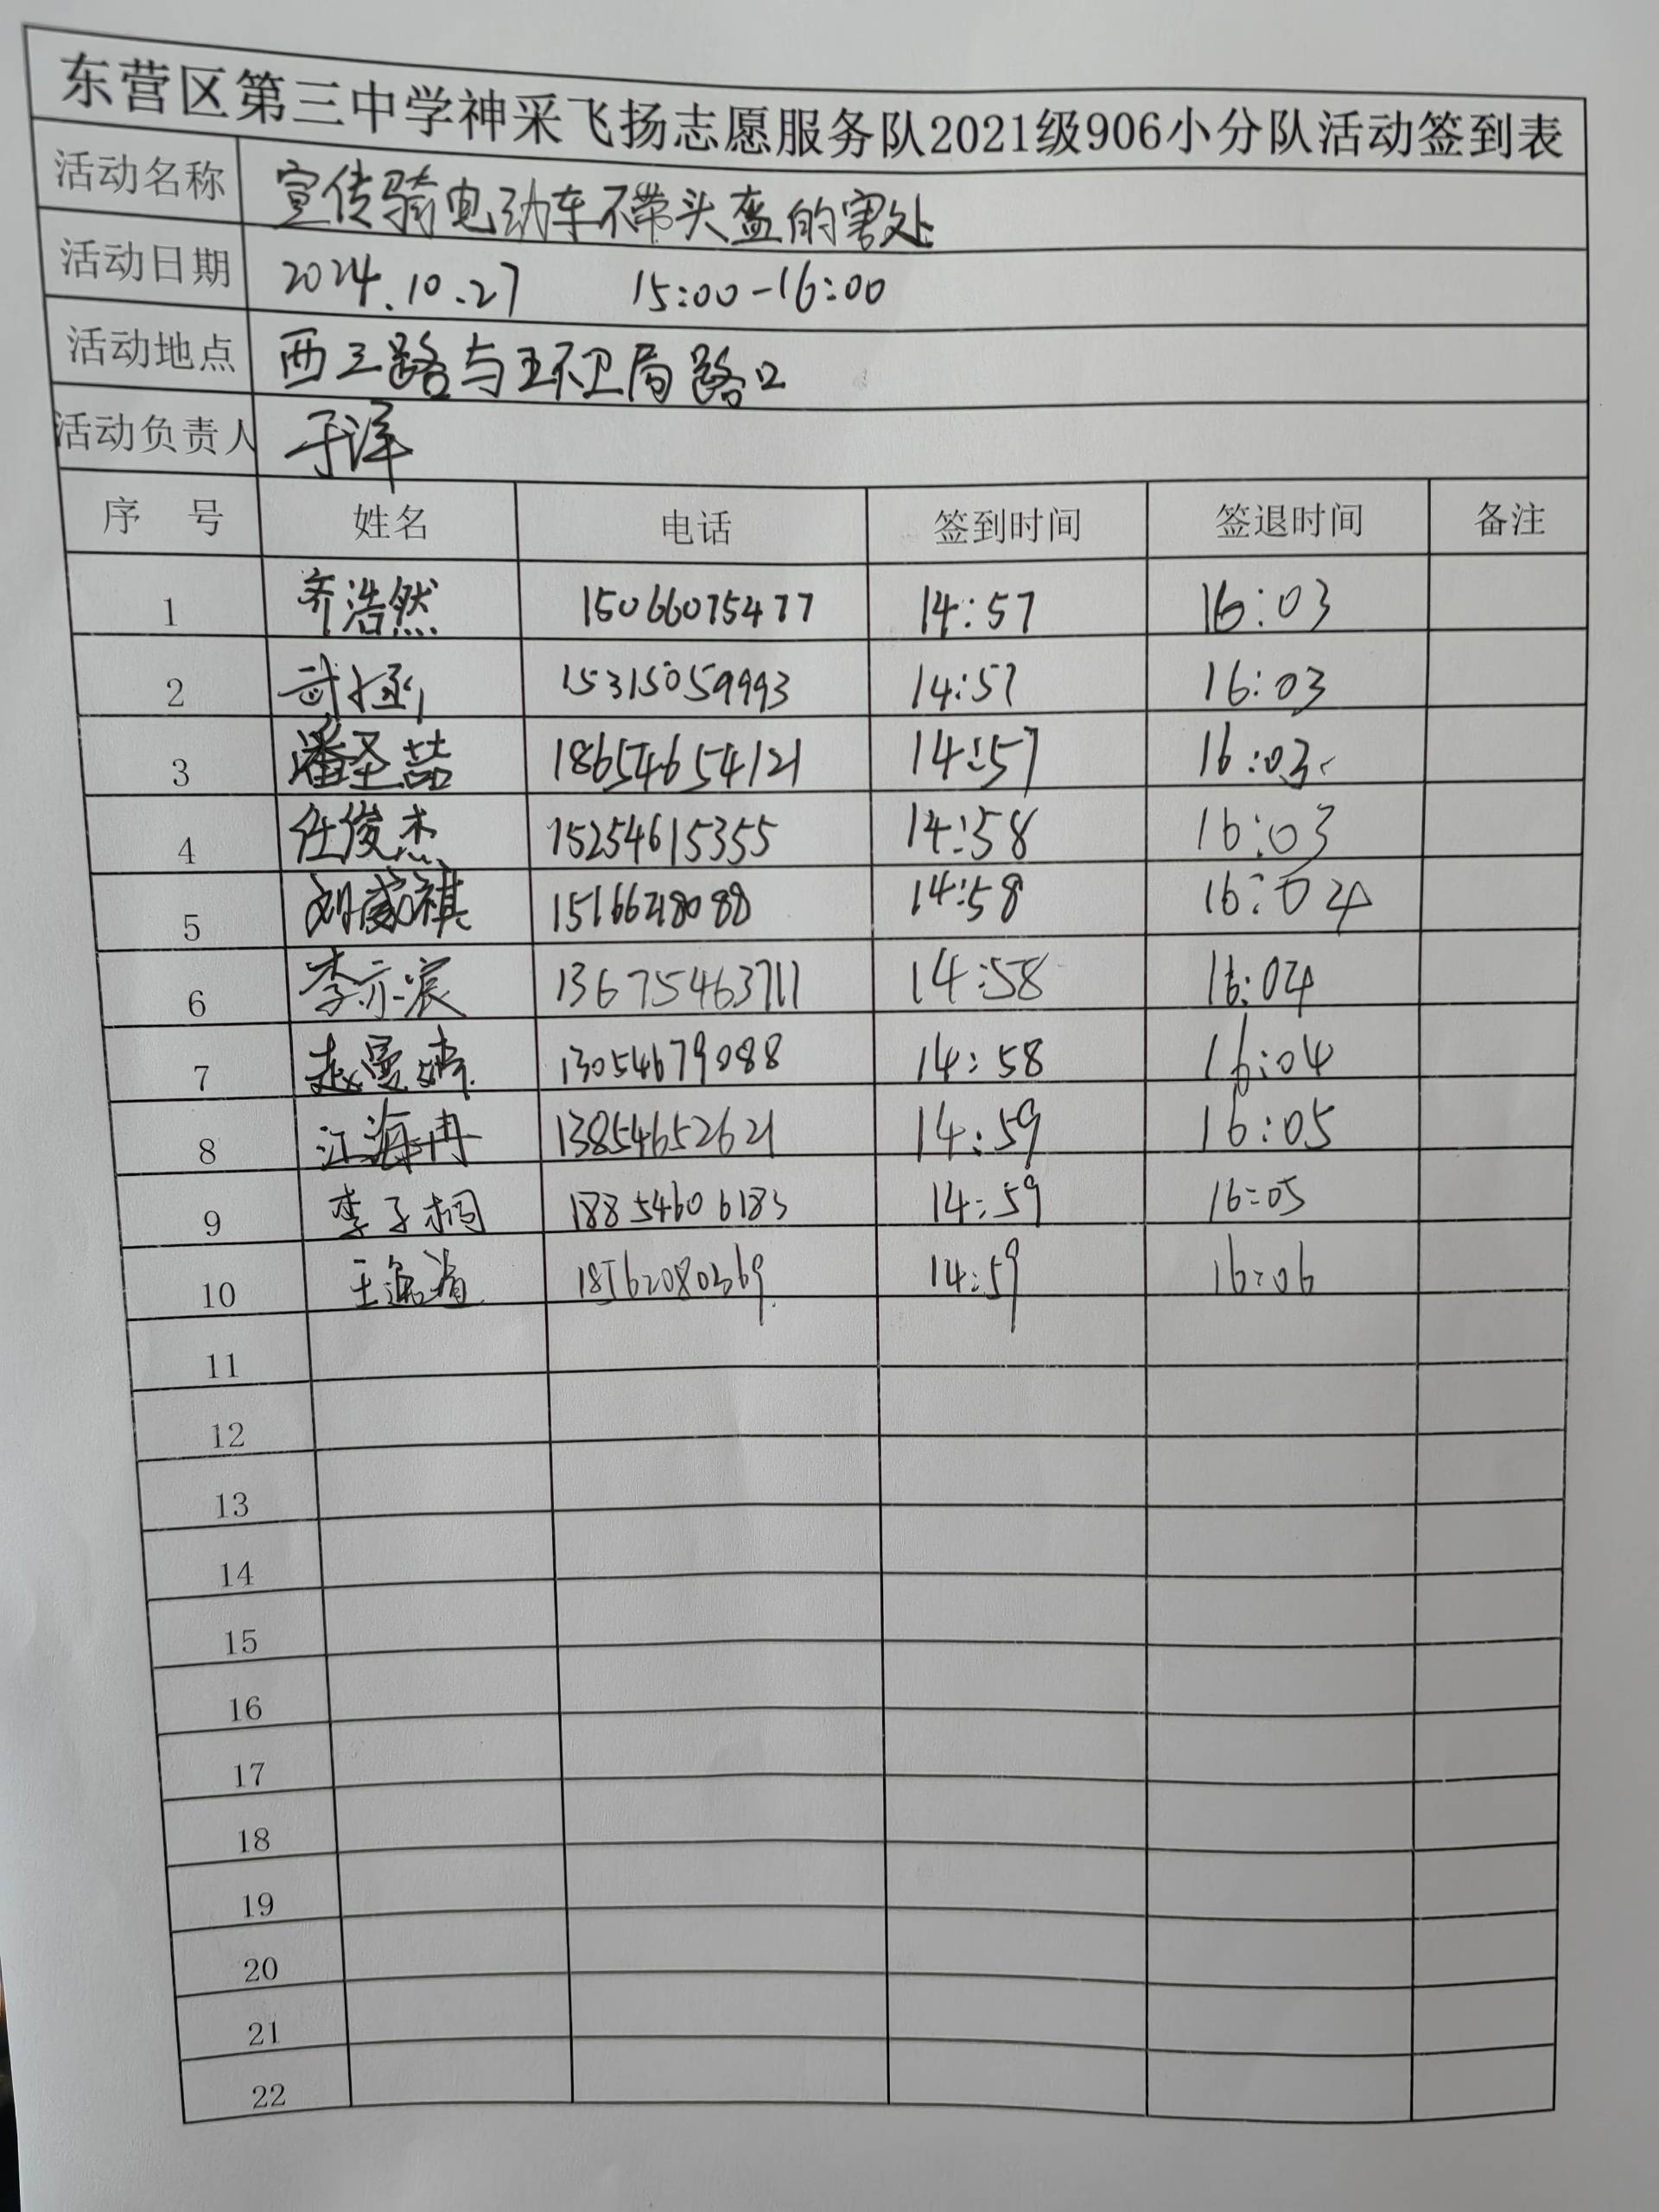 东营区第三中学神采飞扬志愿服务队2021级906小分队活动签到表
活动名称 宣传骑电动车不带头盔的害处
活动日期 2024.10.27 15:00-16:00
活动地点 西三路与环卫局路口
活动负责人 于洋
序 号 姓名 电话 签到时间 签退时间 备注
1 齐浩然 15066075477 14:57 16:03
2 15315059993 14:57 16:03
3 潘圣喆 18654654121 14:57 16:03
4 任俊杰 15254615355 14:58 16:03
5 14:58 16:04
6 李亦宸 13675463711 14:58 16:04
7 赵曼 13054679088 14:58 16:04
8 江海冉 13854652621 14:59 16:05
9 李子桐 18854606183 14:59 16:05
10 王 18562080369 14:59 16:06
11
12
13
14
15
16
17
18
19
20
21
22